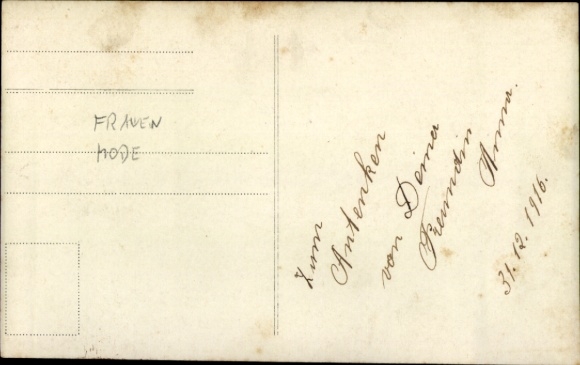 FRAUEN
MODE
Zum
Antenken
von Deiner
Freundin
Anna.
31.12.1916.